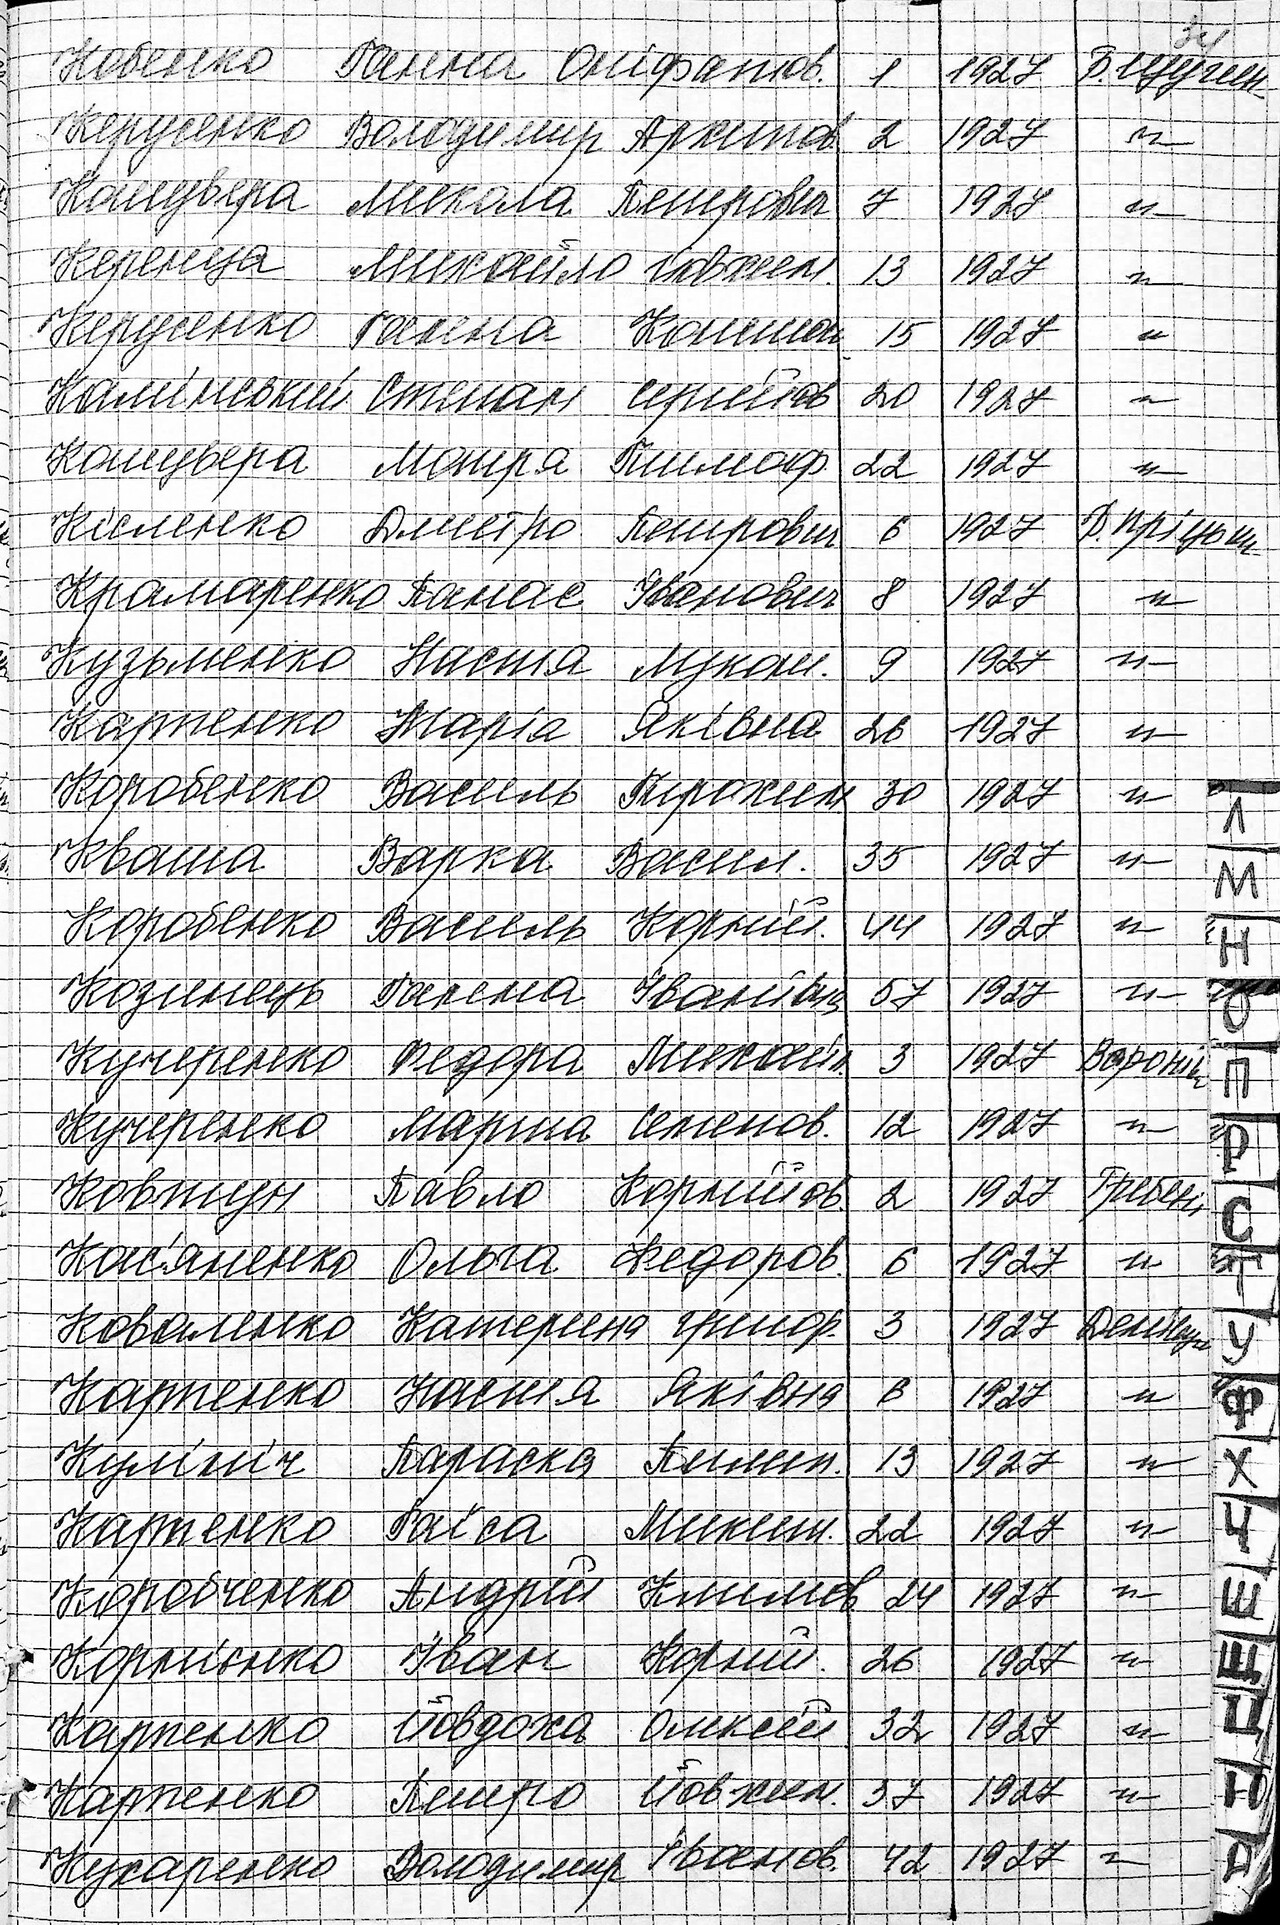 34
Кобенко Ганна Оніфатов. 1 1927 Б.
Керусенко Володимир Архипов 2 1927 -"-
Кацувера Микола Петрович 7 1927 -"-
Керенця Михайло Йовхим. 13 1927 -"-
Керусенко Галена 15 1927 -"-
Калінський Степан Сергійов 20 1927 -"-
Кацувера Мотря Тимоф. 22 1927 -"-
Кісленко Дмитро Петрович 6 1927 Д. Пріцьки
Крамаренко Панас Іванович 8 1927 -"-
Кузьменко Настя Мукол. 9 1927 -"-
Карпенко Марія Яківна 26 1927 -"-
Коробенко Василь Трохим 30 1927 -"-
Кваша Варка Васил. 35 1927 -"-
Коробенко Василь Корній. 44 1927 -"-
Козинець Галена Іванівна 57 1927 -"-
Кучеренко Федора Михайл. 3 1927
Кучеренко Марта Семенов. 12 1927 -"-
Ковтун Павло Корнійов. 2 1927 Гребені
Кас'яненко Ольга Федоров. 6 1927 -"-
Коваленко Катерина Григор. 3 1927
Карпенко Настя Яківна 6 1927 -"-
Кулініч Параска Пилип. 13 1927 -"-
Карпенко Раїса Микит. 22 1927 -"-
Коробченко Андрій Климов. 24 1927 -"-
Корнієнко Іван Корній. 26 1927 -"-
Карпенко Йовдоха Олексій 32 1927 -"-
Карпенко Петро Йовхим. 37 1927 -"-
Кухаренко Володимир Іванов. 42 1927 -"-
Л
М
Н
О
П
Р
С
Т
У
Ф
Х
Ч
Ш
Щ
Ц